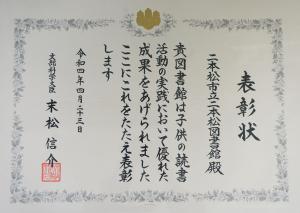 表彰状
二本松市立二本松図書館 殿
貴図書館は子供の読書
活動の実践において優れた
成果をあげられました
ここにこれをたたえ表彰
します
令和四年四月二十三日
文部科学大臣 末松信介